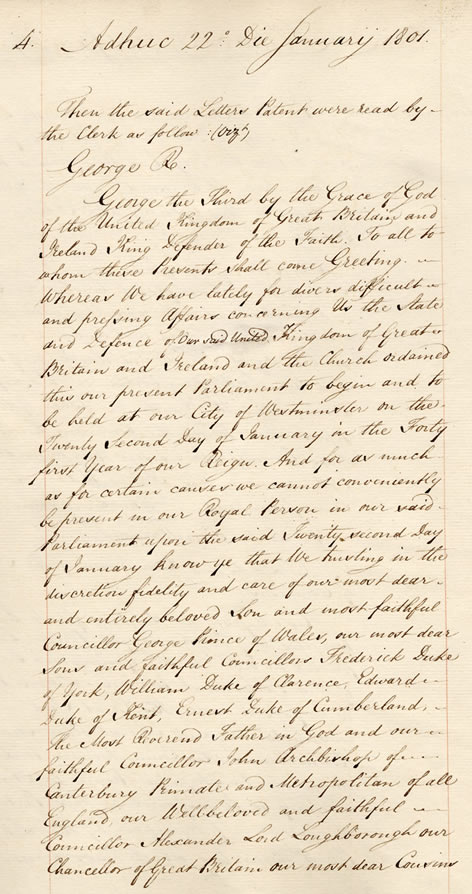 4. Adhuc 22° Die Januarij 1801.
Then the said Letters Patent were read by
the Clerk as follow: (vizt)
George R.
George the Third by the Grace of God
of the United Kingdom of Great Britain and
Ireland King Defender of the Faith. To all to
whom these Presents shall come Greeting.
Whereas We have lately for divers difficult
and pressing Affairs concerning Us the State
and Defence of Our said United Kingdom of Great
Britain and Ireland and the Church ordained
this our present Parliament to begin and to
be held at our City of Westminster on the
Twenty Second Day of January in the Forty
first Year of our Reign. And for as much
as for certain causes we cannot conveniently
be present in our Royal Person in our said
Parliament upon the said Twenty second Day
of January know ye that We trusting in the
discretion fidelity and care of our most dear
and entirely beloved Son and most faithful
Councillor George Prince of Wales, our most dear
Sons and faithful Councillors Frederick Duke
of York, William Duke of Clarence, Edward
Duke of Kent, Ernest Duke of Cumberland,
The Most Reverend Father in God and our
faithful Councillor John Archbishop of
Canterbury Primate and Metropolitan of all
England our Wellbeloved and faithful
Councillor Alexander Lord Loughborough our
Chancellor of Great Britain our most dear Cousins